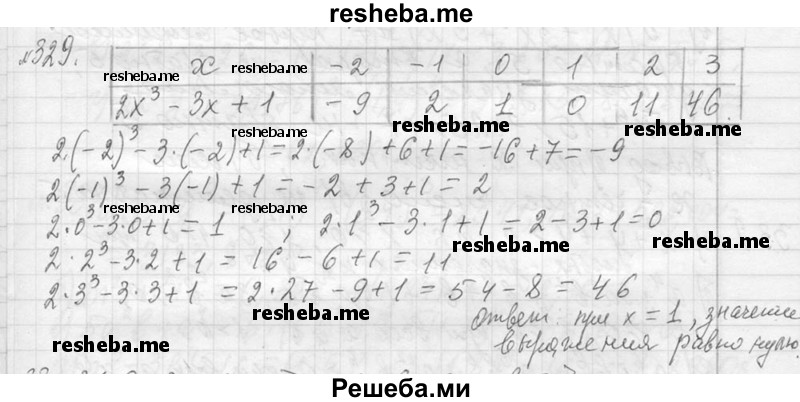 resheba.me
№329.
x | -2 | -1 | 0 | 1 | 2 | 3
2x³ - 3x + 1 | -9 | 2 | 1 | 0 | 11 | 46
resheba.me resheba.me
resheba.me resheba.me
2·(-2)³ - 3·(-2)+1 = 2·(-8) + 6 + 1 = -16 + 7 = -9
resheba.me resheba.me
2(-1)³ - 3(-1) + 1 = -2 + 3 + 1 = 2
resheba.me resheba.me
2·0³ - 3·0 + 1 = 1 ; 2·1³ - 3·1 + 1 = 2 - 3 + 1 = 0
resheba.me resheba.me
2·2³ - 3·2 + 1 = 16 - 6 + 1 = 11
2·3³ - 3·3 + 1 = 2·27 - 9 + 1 = 54 - 8 = 46
resheba.me resheba.me
Ответ. при x = 1, значение
выражения равно нулю.
resheba.me
Решеба.ми